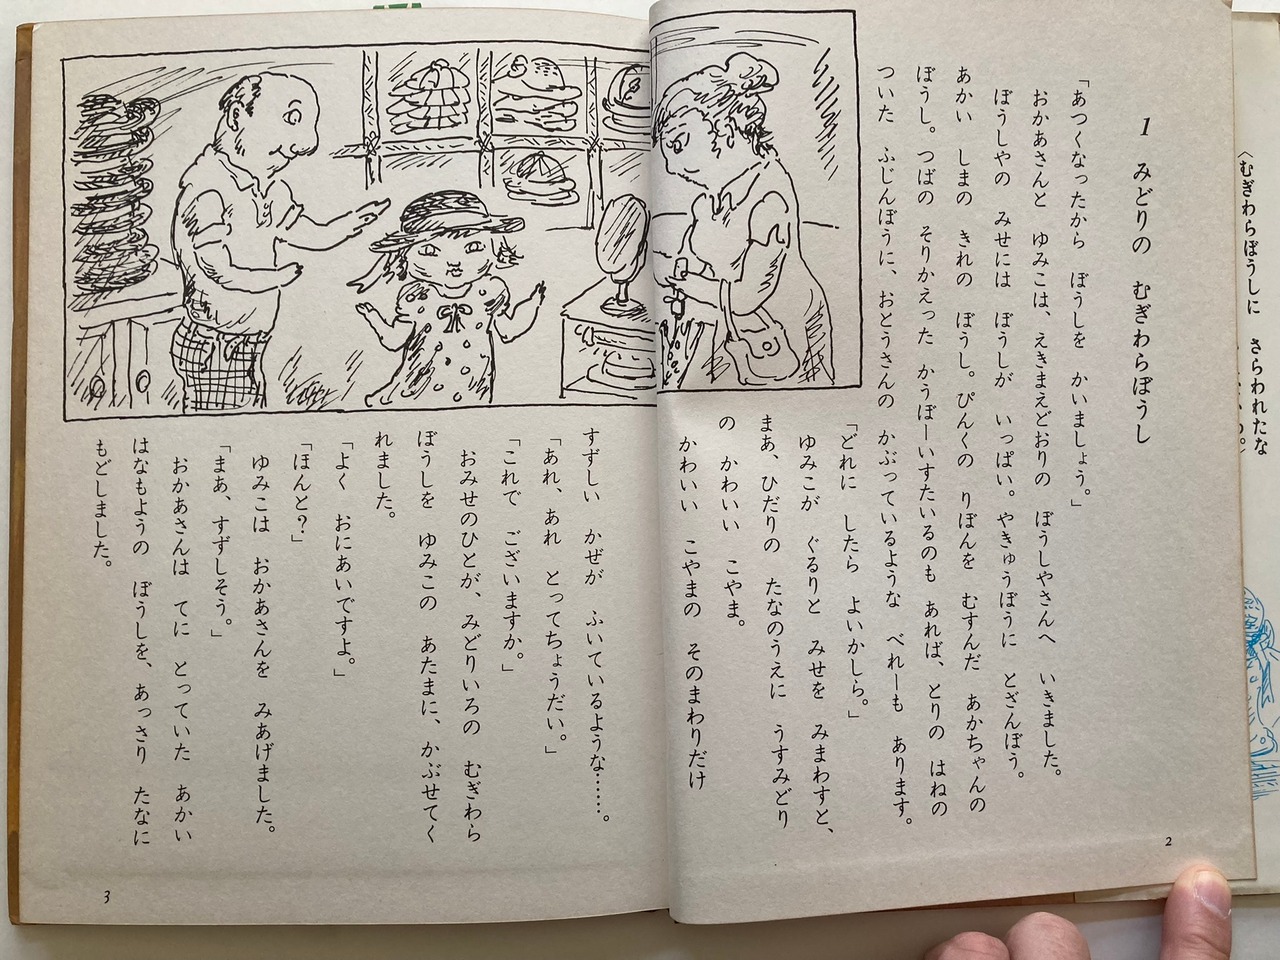 1 みどりの むぎわらぼうし
「あつくなったから ぼうしを かいましょう。」
おかあさんと ゆみこは、えきまえどおりの ぼうしやさんへ いきました。
ぼうしやの みせには ぼうしが いっぱい。やきゅうぼうに とざんぼう。
あかい しまの きれの ぼうし。ぴんくの りぼんを むすんだ あかちゃんの
ぼうし。つばの そりかえった かうぼーいすたいるのも あれば、とりの はねの
ついた ふじんぼうに、おとうさんの かぶっているような べれーも あります。
「どれに したら よいかしら。」
ゆみこが ぐるりと みせを みまわすと、
まあ、ひだりの たなのうえに うすみどり
の かわいい こやま。
かわいい こやまの そのまわりだけ
2
すずしい かぜが ふいているような……。
「あれ、あれ とってちょうだい。」
「これで ございますか。」
おみせのひとが、みどりいろの むぎわら
ぼうしを ゆみこの あたまに、かぶせてく
れました。
「よく おにあいですよ。」
「ほんと？」
ゆみこは おかあさんを みあげました。
「まあ、すずしそう。」
おかあさんは てに とっていた あかい
はなもようの ぼうしを、あっさり たなに
もどしました。
3
〈むぎわらぼうしに さらわれたな